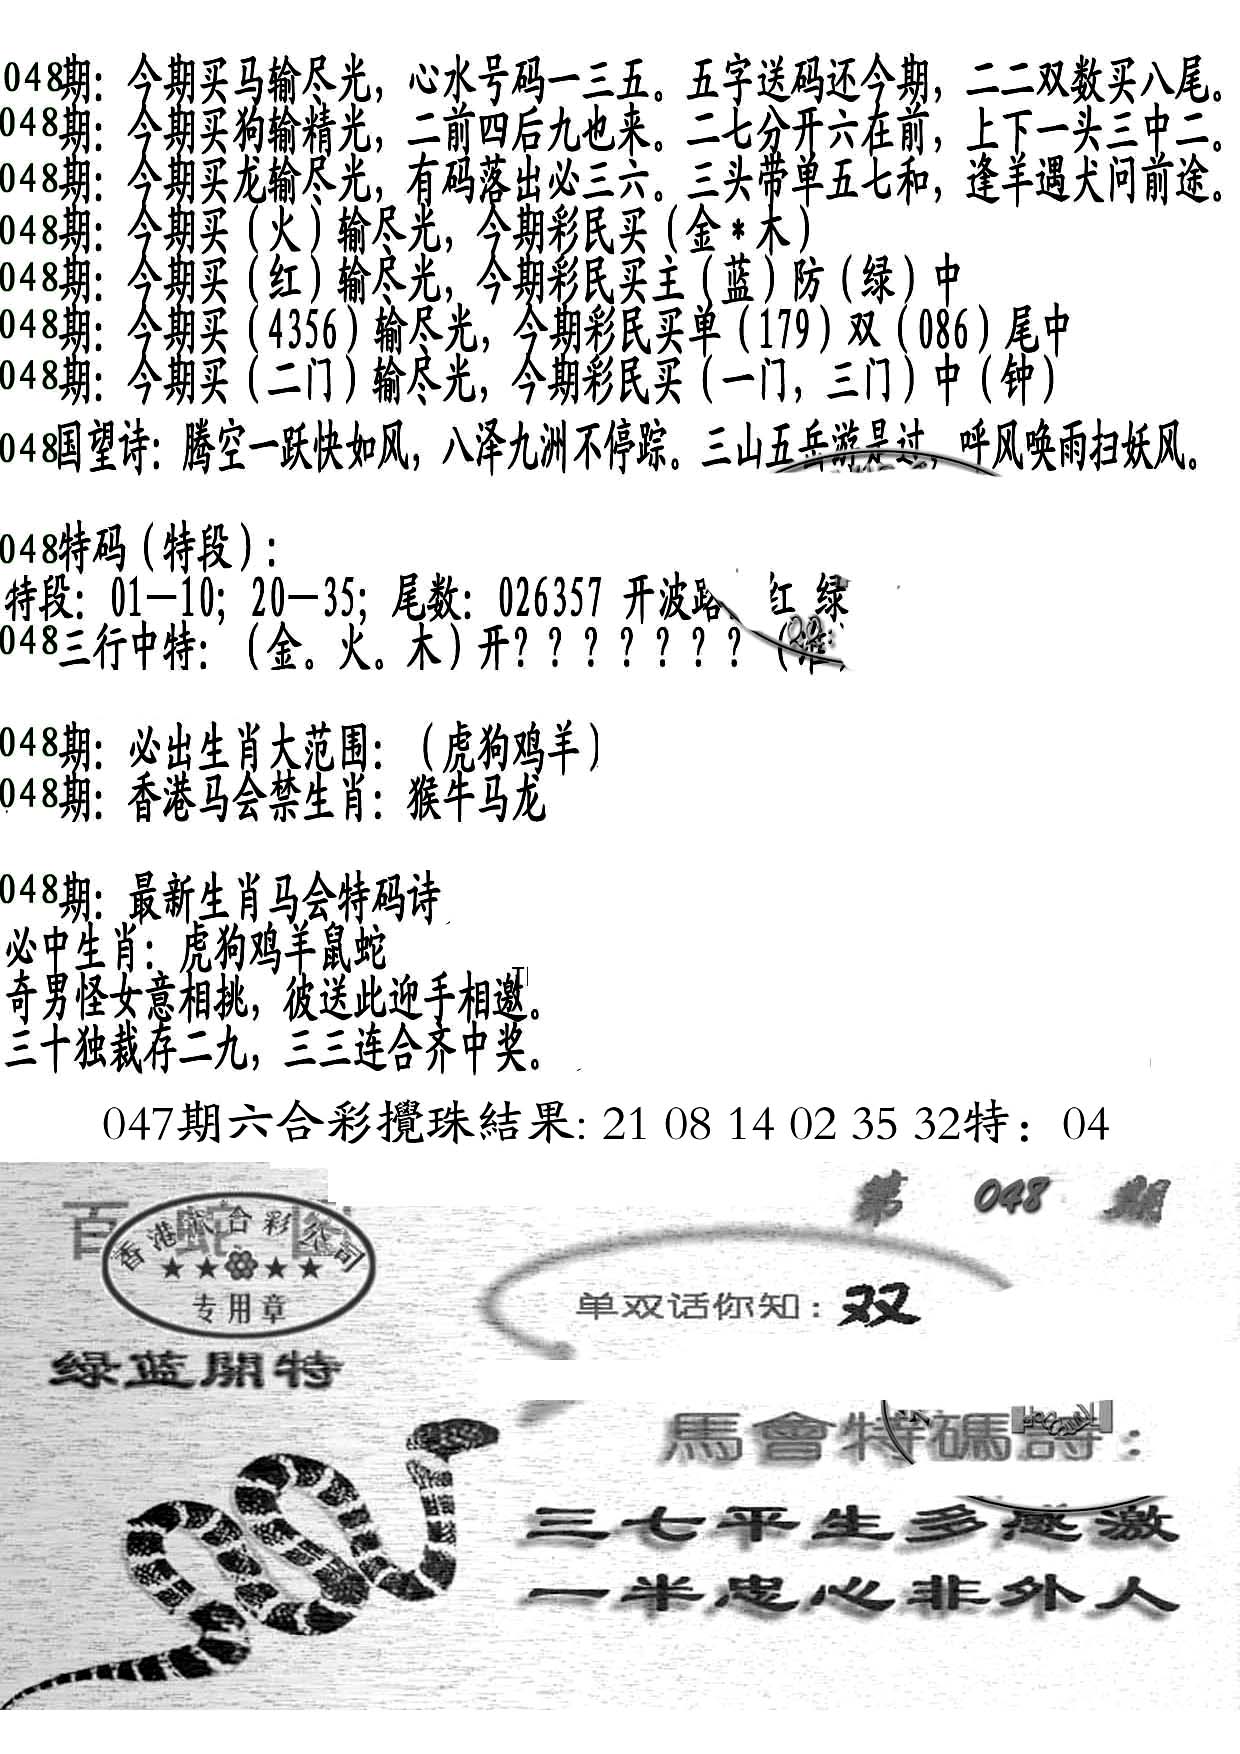 048期：今期买马输尽光，心水号码一三五。五字送码还今期，二二双数买八尾。
048期：今期买狗输精光，二前四后九也来。二七分开六在前，上下一头三中二。
048期：今期买龙输尽光，有码落出必三六。三头带单五七和，逢羊遇犬问前途。
048期：今期买（火）输尽光，今期彩民买（金*木）
048期：今期买（红）输尽光，今期彩民买主（蓝）防（绿）中
048期：今期买（4356）输尽光，今期彩民买单（179）双（086）尾中
048期：今期买（二门）输尽光，今期彩民买（一门，三门）中（钟）
048国望诗：腾空一跃快如风，八泽九洲不停踪。三山五岳游是过，呼风唤雨扫妖风。
048特码（特段）：
特段：01—10；20—35；尾数：026357 开波路 红 绿
048三行中特：（金。火。木）开？？？？？？？（准
048期：必出生肖大范围：（虎狗鸡羊）
048期：香港马会禁生肖：猴牛马龙
048期：最新生肖马会特码诗
必中生肖：虎狗鸡羊鼠蛇
奇男怪女意相挑，彼送此迎手相邀。
三十独裁存二九，三三连合齐中奖。
047期六合彩攪珠結果: 21 08 14 02 35 32特：04
第 048 期
百蛇图
香港六合彩公司
★★★★
专用章
单双话你知：双
绿蓝開特
馬會特碼詩：
三七平生多感激
一半忠心非外人